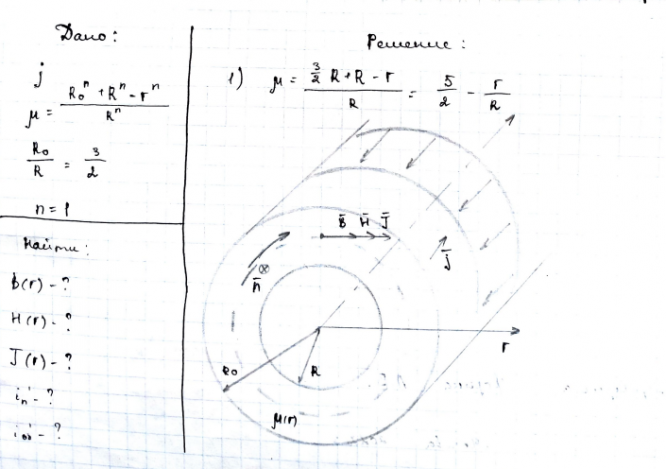 Дано:
j
μ = (R₀ⁿ + Rⁿ - rⁿ) / Rⁿ
R₀ / R = 3 / 2
n = 1
Найти:
B(r) - ?
H(r) - ?
J(r) - ?
i'п - ?
i'об - ?
Решение:
1) μ = (3/2 R + R - r) / R = 5/2 - r/R
B̄ H̄ J̄
n̄
j̄
r
R₀
R
μ(r)